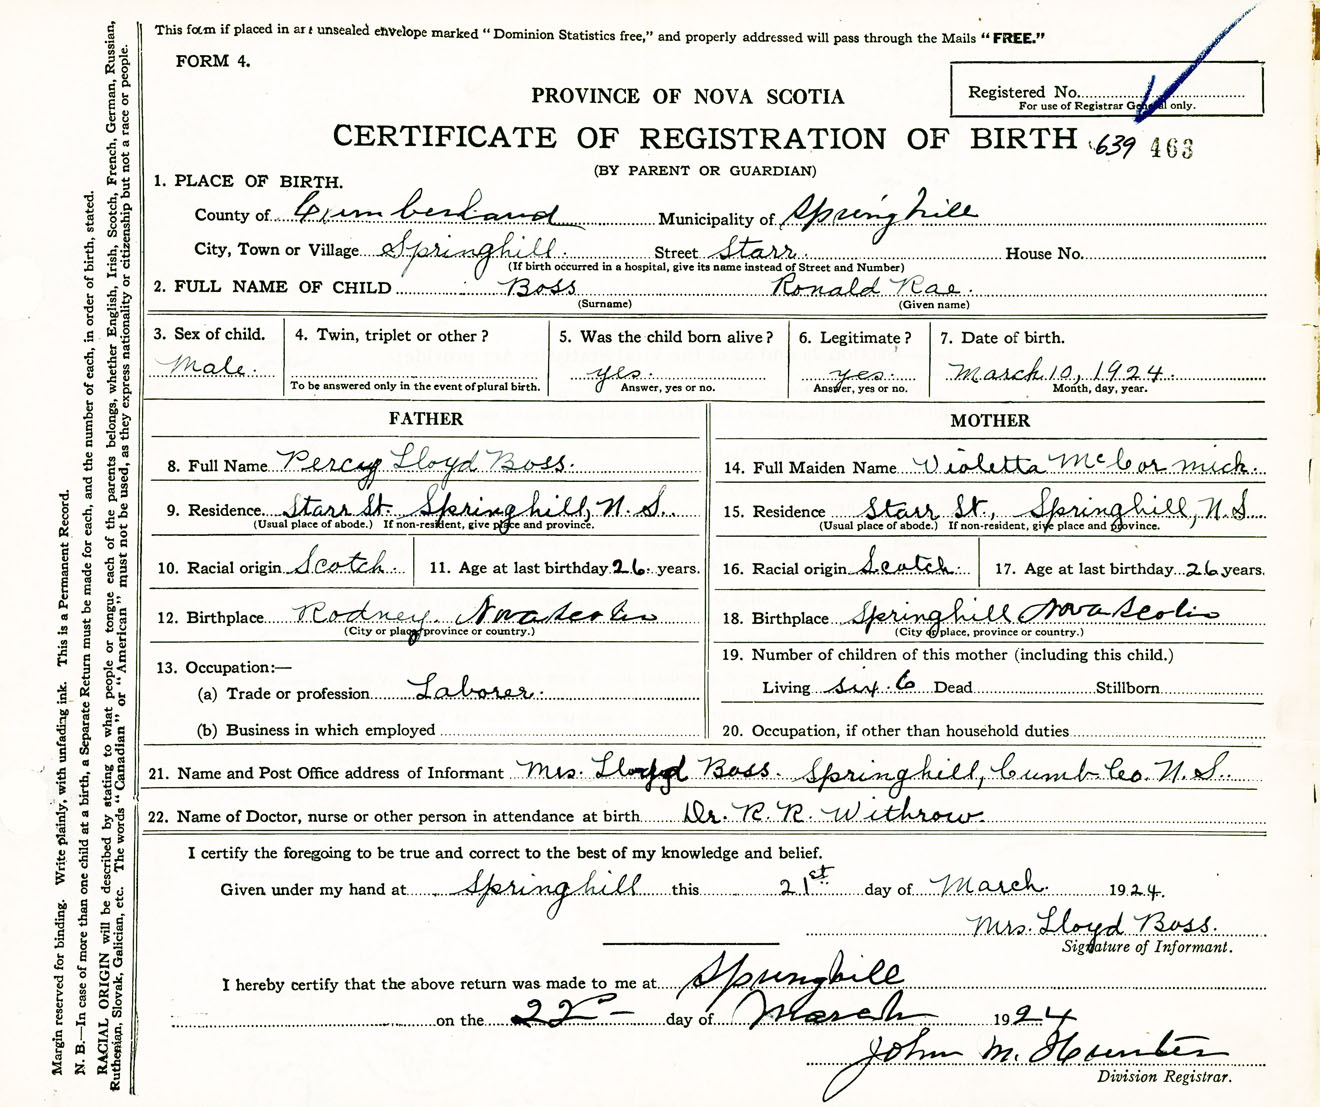 This form if placed in an unsealed envelope marked "Dominion Statistics free," and properly addressed will pass through the Mails "FREE."
FORM 4.
Registered No.
For use of Registrar General only.
PROVINCE OF NOVA SCOTIA
CERTIFICATE OF REGISTRATION OF BIRTH 639 463
(BY PARENT OR GUARDIAN)
1. PLACE OF BIRTH.
County of Cumberland Municipality of Springhill
City, Town or Village Springhill. Street Starr. House No.
(If birth occurred in a hospital, give its name instead of Street and Number)
2. FULL NAME OF CHILD Boss Ronald Rae.
(Surname) (Given name)
3. Sex of child. 4. Twin, triplet or other? 5. Was the child born alive? 6. Legitimate? 7. Date of birth.
Male. yes. yes. March 10, 1924.
To be answered only in the event of plural birth. Answer, yes or no. Answer, yes or no. Month, day, year.
FATHER
8. Full Name Percy Lloyd Boss.
9. Residence. Starr St. Springhill, N. S.
(Usual place of abode.) If non-resident, give place and province.
10. Racial origin Scotch. 11. Age at last birthday 26. years.
12. Birthplace Rodney. Nova Scotia
(City or place, province or country.)
13. Occupation:—
(a) Trade or profession Laborer.
(b) Business in which employed
MOTHER
14. Full Maiden Name Violetta McCormick.
15. Residence Starr St., Springhill, N. S.
(Usual place of abode.) If non-resident, give place and province.
16. Racial origin Scotch. 17. Age at last birthday 26 years.
18. Birthplace Springhill Nova Scotia
(City or place, province or country.)
19. Number of children of this mother (including this child.)
Living six. 6 Dead Stillborn
20. Occupation, if other than household duties
21. Name and Post Office address of Informant Mrs. Lloyd Boss. Springhill, Cumb. Co. N. S.
22. Name of Doctor, nurse or other person in attendance at birth Dr. R. R. Withrow.
I certify the foregoing to be true and correct to the best of my knowledge and belief.
Given under my hand at Springhill this 21st day of March. 1924.
Mrs. Lloyd Boss.
Signature of Informant.
I hereby certify that the above return was made to me at Springhill
on the 22nd day of March 1924
John M. Hunter
Division Registrar.
Margin reserved for binding. Write plainly, with unfading ink. This is a Permanent Record.
N. B.—In case of more than one child at a birth, a Separate Return must be made for each, and the number of each, in order of birth, stated.
RACIAL ORIGIN will be described by stating to what people or tongue each of the parents belongs, whether English, Irish, Scotch, French, German, Russian,
Ruthenian, Slovak, Galician, etc. The words "Canadian" or "American" must not be used, as they express nationality or citizenship but not a race or people.